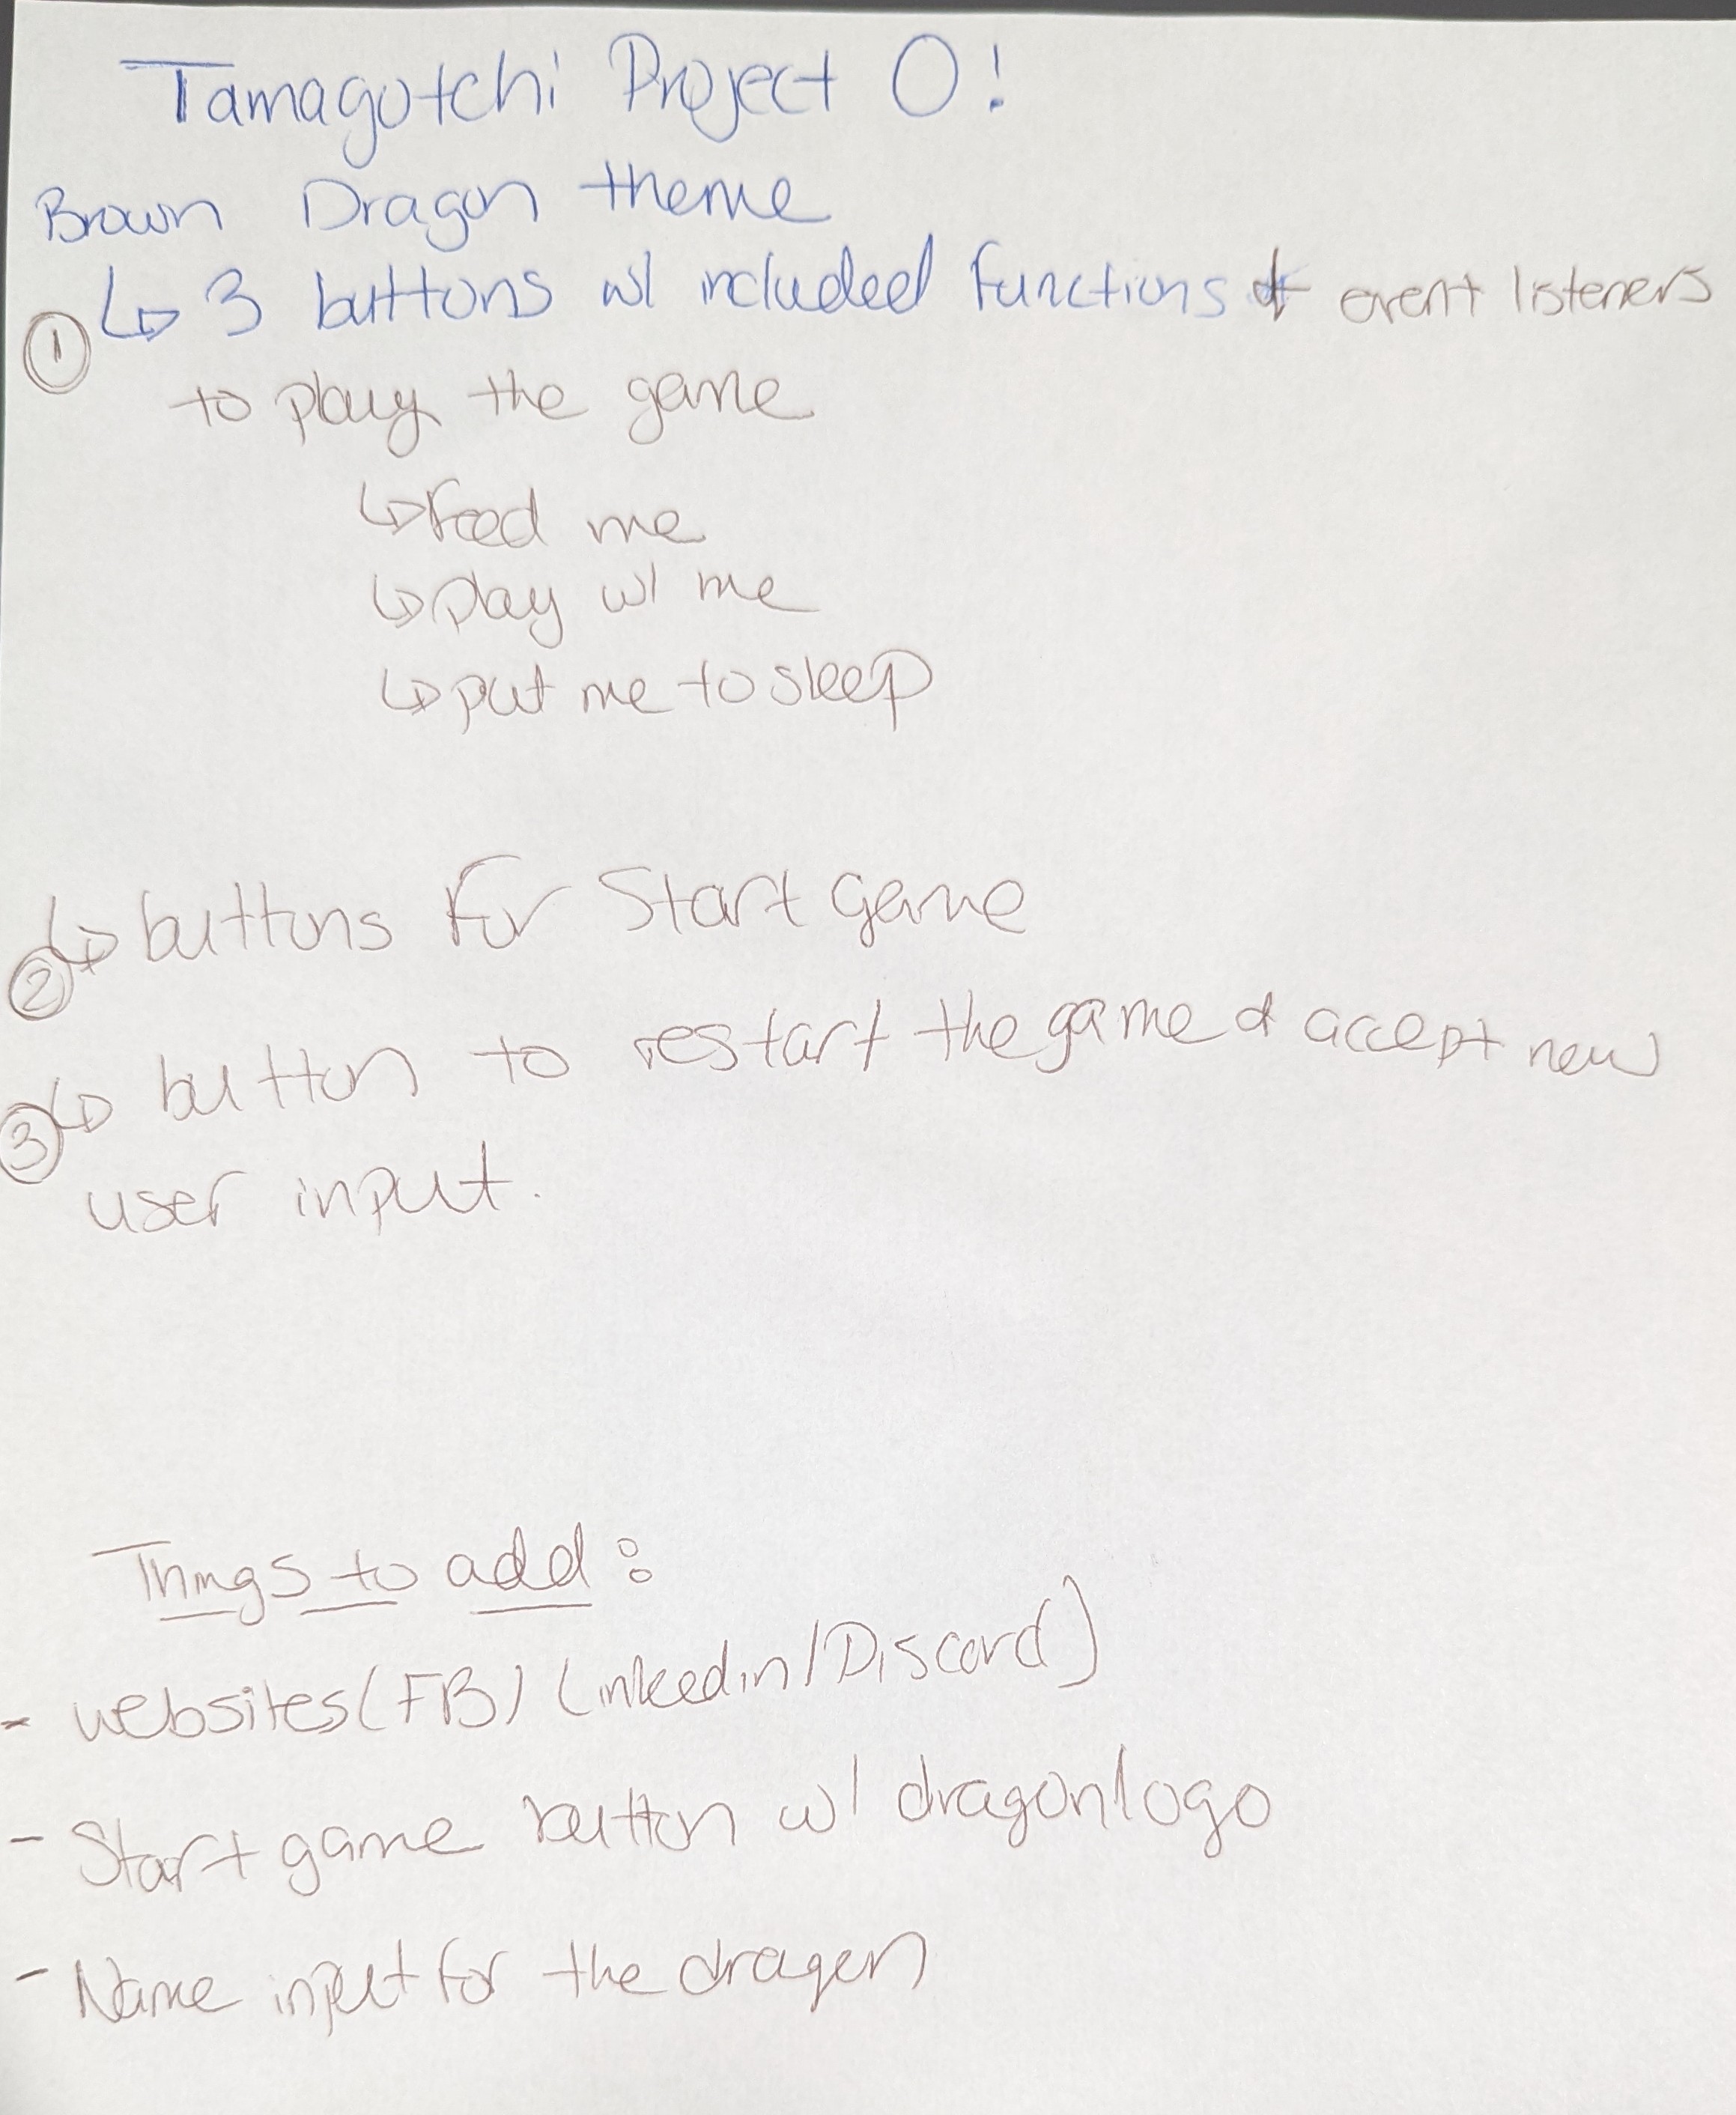 Tamagotchi Project 0!
Brown Dragon theme
① ↳ 3 buttons w/ included functions & event listeners
to play the game
↳ feed me
↳ play w/ me
↳ put me to sleep
② ↳ buttons for Start game
③ ↳ button to restart the game & accept new
user input.
Things to add:
- websites (FB) (Linkedin/Discord)
- Start game button w/ dragon logo
- Name input for the dragon